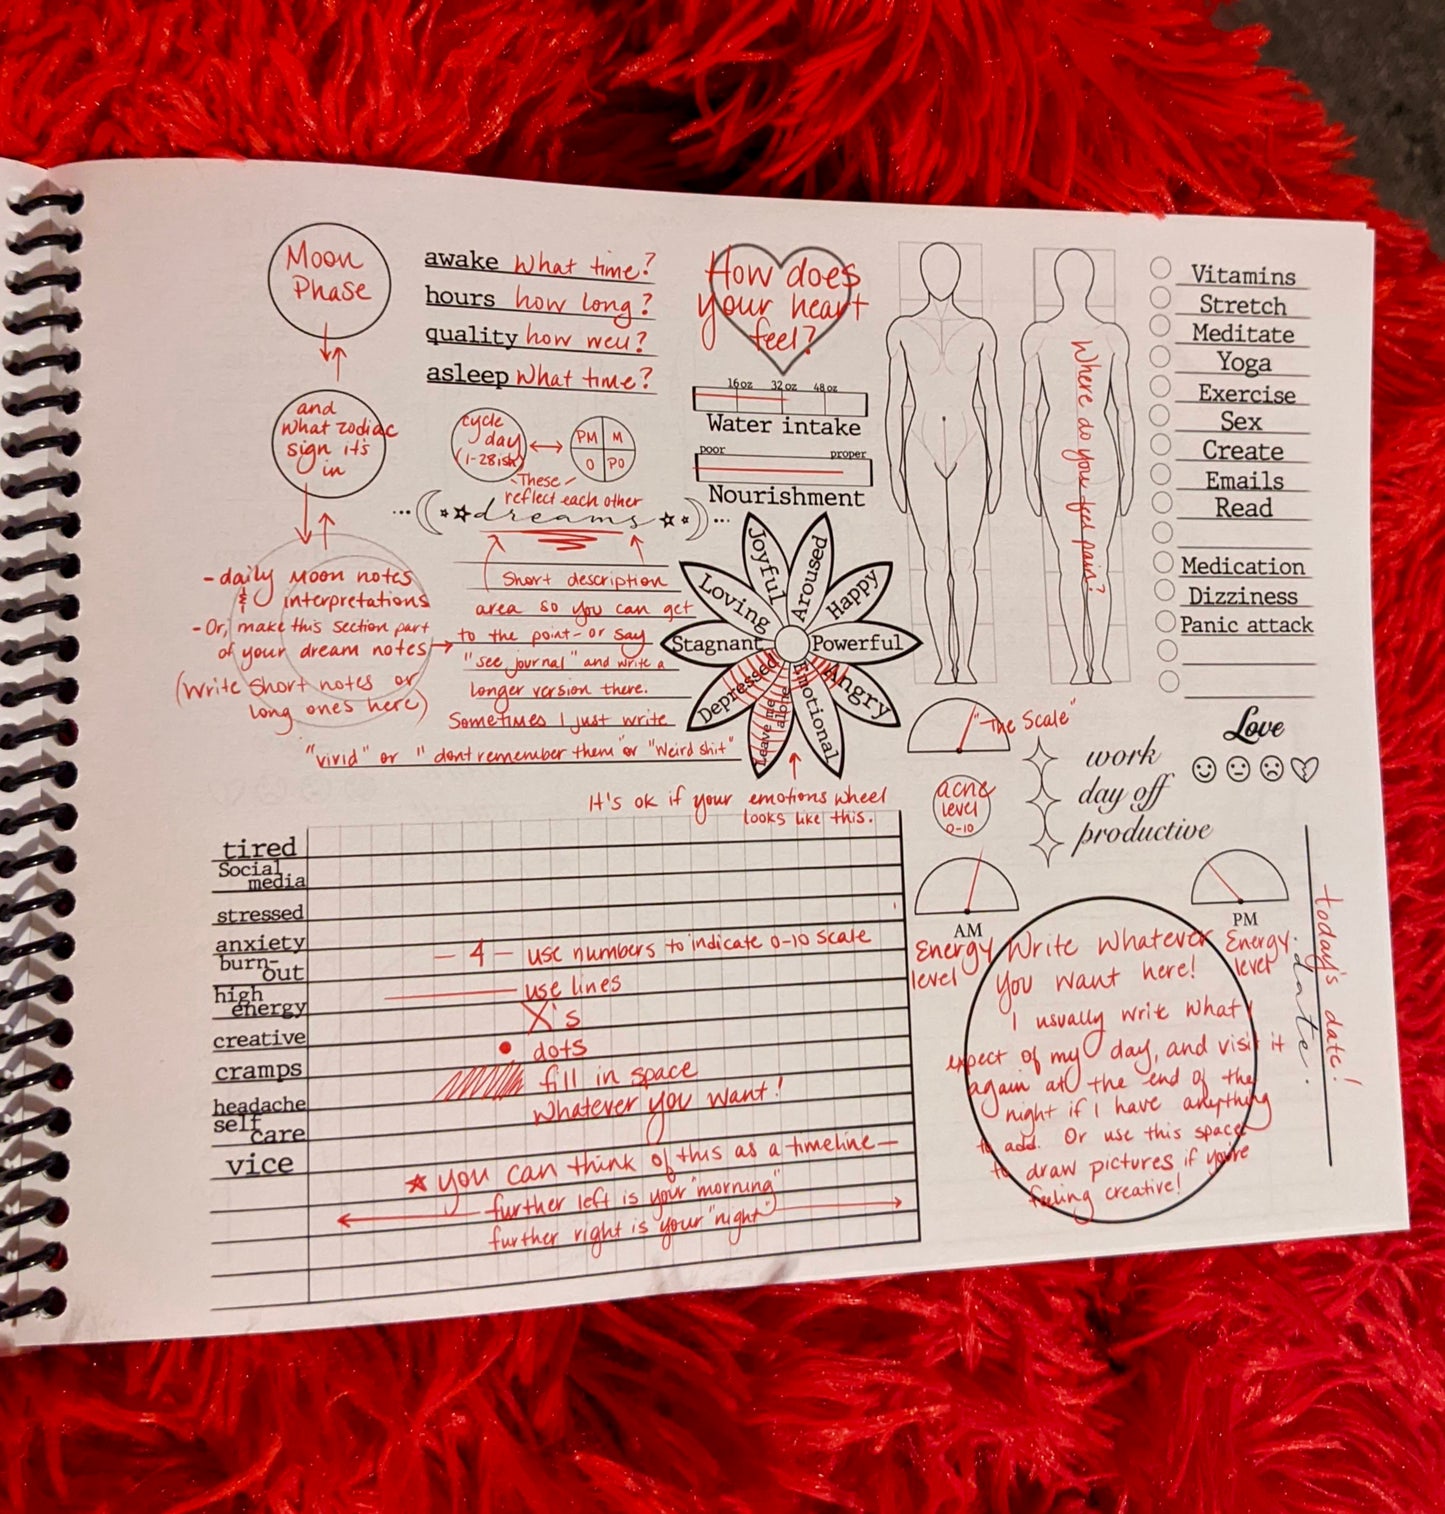 Moon
Phase
and
what zodiac
sign it's
in
- daily Moon notes
& interpretations
- Or, make this section part
of your dream notes
(Write short notes or
long ones here)
awake What time?
hours how long?
quality how well?
asleep What time?
cycle
day
(1-28ish)
PM M
O PO
These
reflect each other
dreams
Short description
area so you can get
to the point - or say
"see journal" and write a
longer version there.
Sometimes I just write
"vivid" or "dont remember them" or "Weird shit"
How does
your heart
feel?
16oz 32oz 48oz
Water intake
poor proper
Nourishment
Joyful
Aroused
Happy
Powerful
Angry
Emotional
Leave me
alone
Depressed
Stagnant
Loving
It's ok if your emotions wheel
looks like this.
Where do you feel pain?
Vitamins
Stretch
Meditate
Yoga
Exercise
Sex
Create
Emails
Read
Medication
Dizziness
Panic attack
"The Scale"
acne
level
0-10
work
day off
productive
Love
AM
Energy
level
PM
Energy
level
today's date!
date:
Write Whatever
You want here!
I usually write what I
expect of my day, and visit it
again at the end of the
night if I have anything
to add. Or use this space
to draw pictures if you're
feeling creative!
tired
Social
media
stressed
anxiety
burn-
out
high
energy
creative
cramps
headache
self
care
vice
- 4 - use numbers to indicate 0-10 scale
use lines
X's
dots
fill in space
whatever you want!
★ you can think of this as a timeline -
further left is your "morning"
further right is your "night"